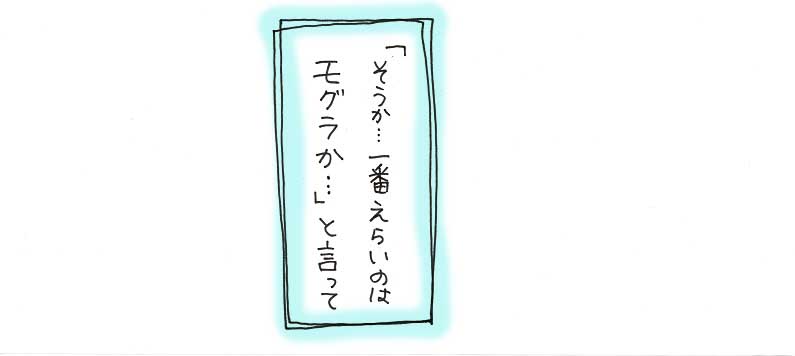 「そうか…一番えらいのは
モグラか…」と言って